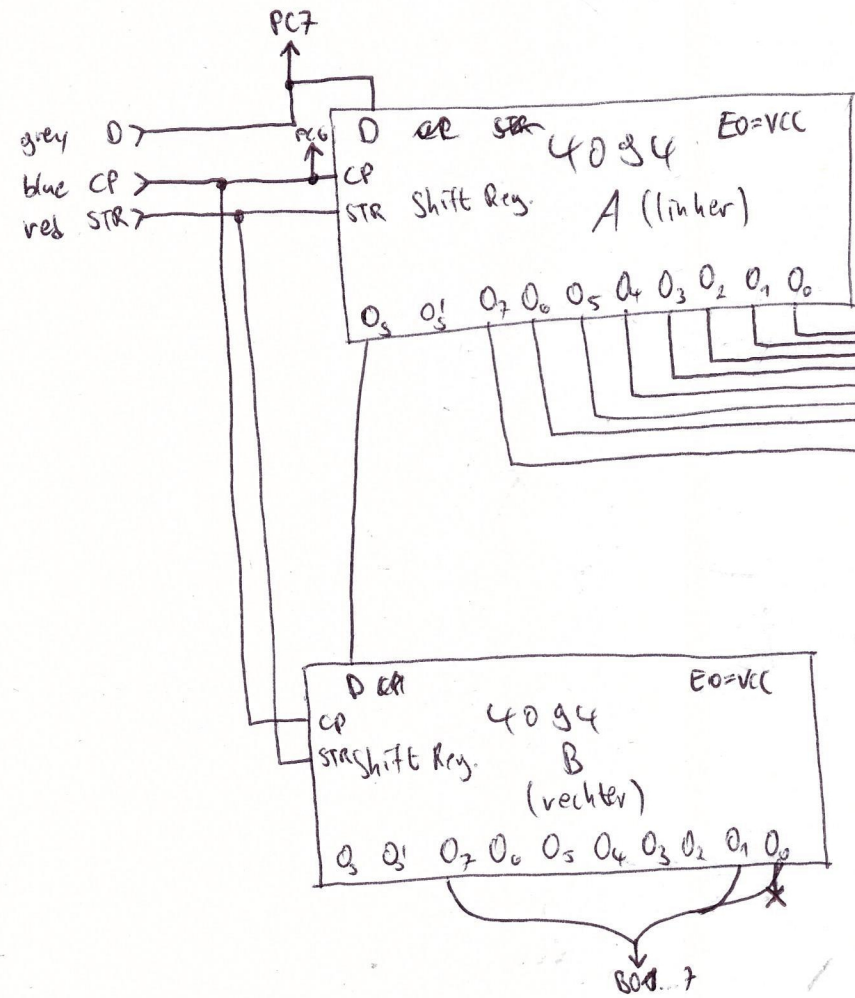 PC7
grey D
blue CP
red STR
PC6
D EO=VCC
4094
CP
STR Shift Reg. A (linker)
Os Os' O7 O6 O5 O4 O3 O2 O1 O0
D EO=VCC
4094
CP
STR Shift Reg. B
(rechter)
Os Os' O7 O6 O5 O4 O3 O2 O1 O0